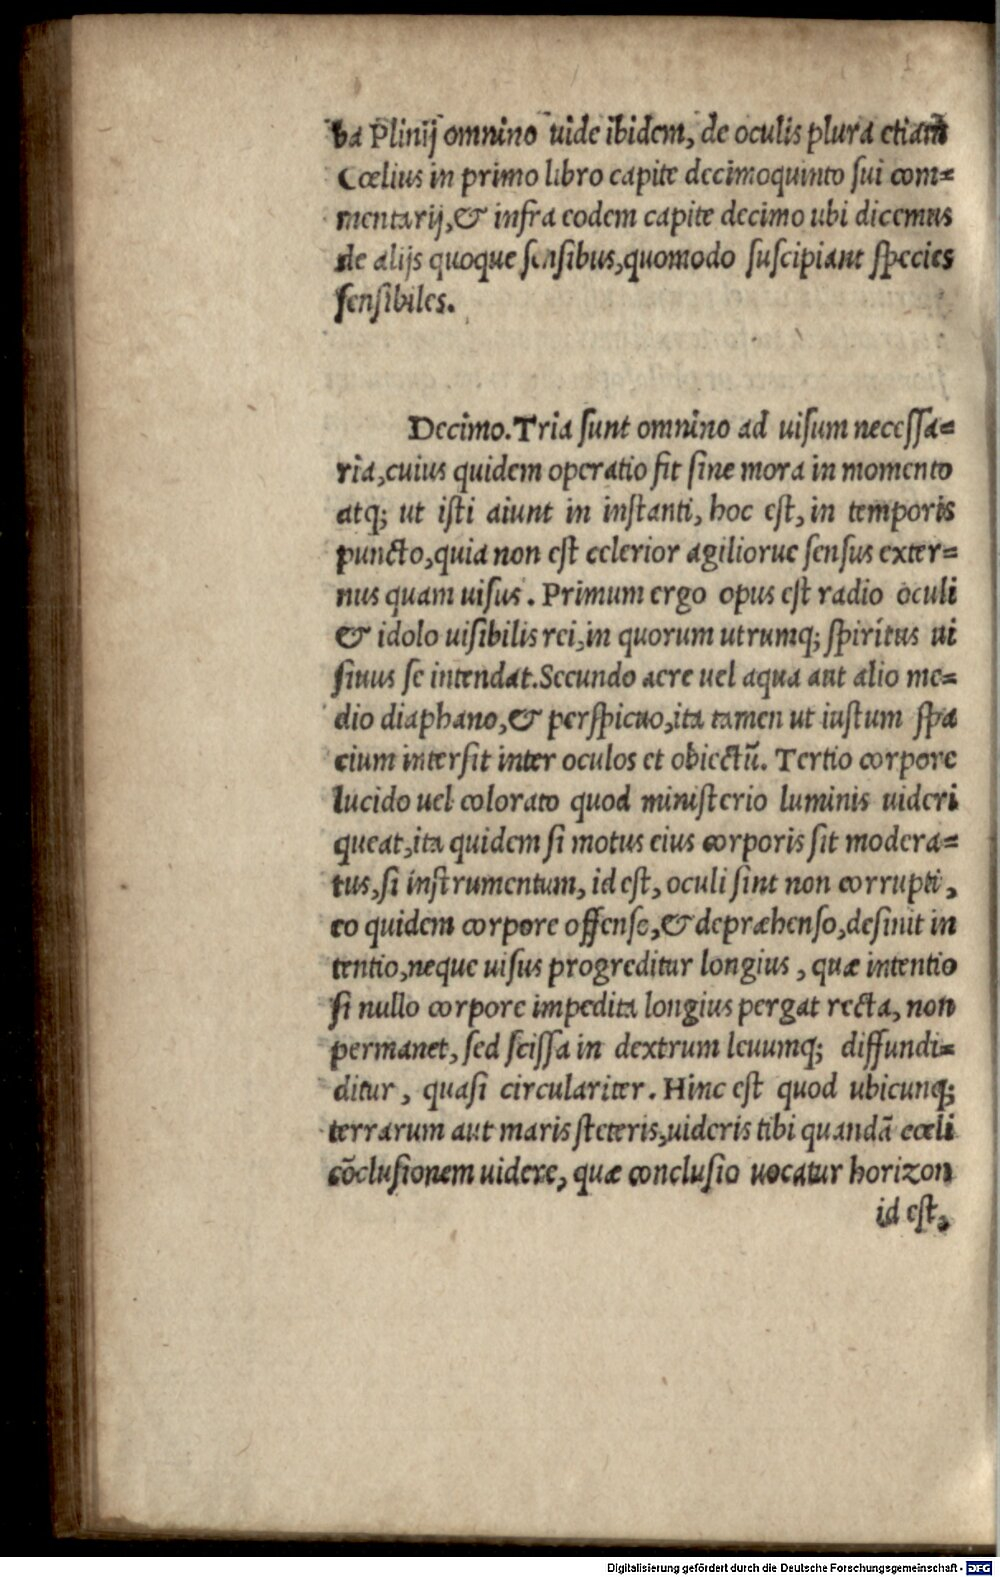 ba Plinij omnino uide ibidem, de oculis plura etiam
Cœlius in primo libro capite decimoquinto sui com=
mentarij, & infra eodem capite decimo ubi dicemus
de alijs quoque sensibus, quomodo suscipiant species
sensibiles.
Decimo. Tria sunt omnino ad uisum necessa=
ria, cuius quidem operatio fit sine mora in momento
atq; ut isti aiunt in instanti, hoc est, in temporis
puncto, quia non est celerior agiliorue sensus exter=
nus quam uisus. Primum ergo opus est radio oculi
& idolo uisibilis rei, in quorum utrumq; spiritus ui
siuus se intendat. Secundo aere uel aqua aut alio me=
dio diaphano, & perspicuo, ita tamen ut iustum spa
cium intersit inter oculos et obiectū. Tertio corpore
lucido uel colorato quod ministerio luminis uideri
queat, ita quidem si motus eius corporis sit modera=
tus, si instrumentum, id est, oculi sint non corrupti,
eo quidem corpore offenso, & depræhenso, desinit in
tentio, neque uisus progreditur longius, quæ intentio
si nullo corpore impedita longius pergat recta, non
permanet, sed scissa in dextrum leuumq; diffundi=
ditur, quasi circulariter. Hinc est quod ubicunq;
terrarum aut maris steteris, uideris tibi quandā cœli
cōclusionem uidere, quæ conclusio uocatur horizon
id est,
Digitalisierung gefördert durch die Deutsche Forschungsgemeinschaft - DFG